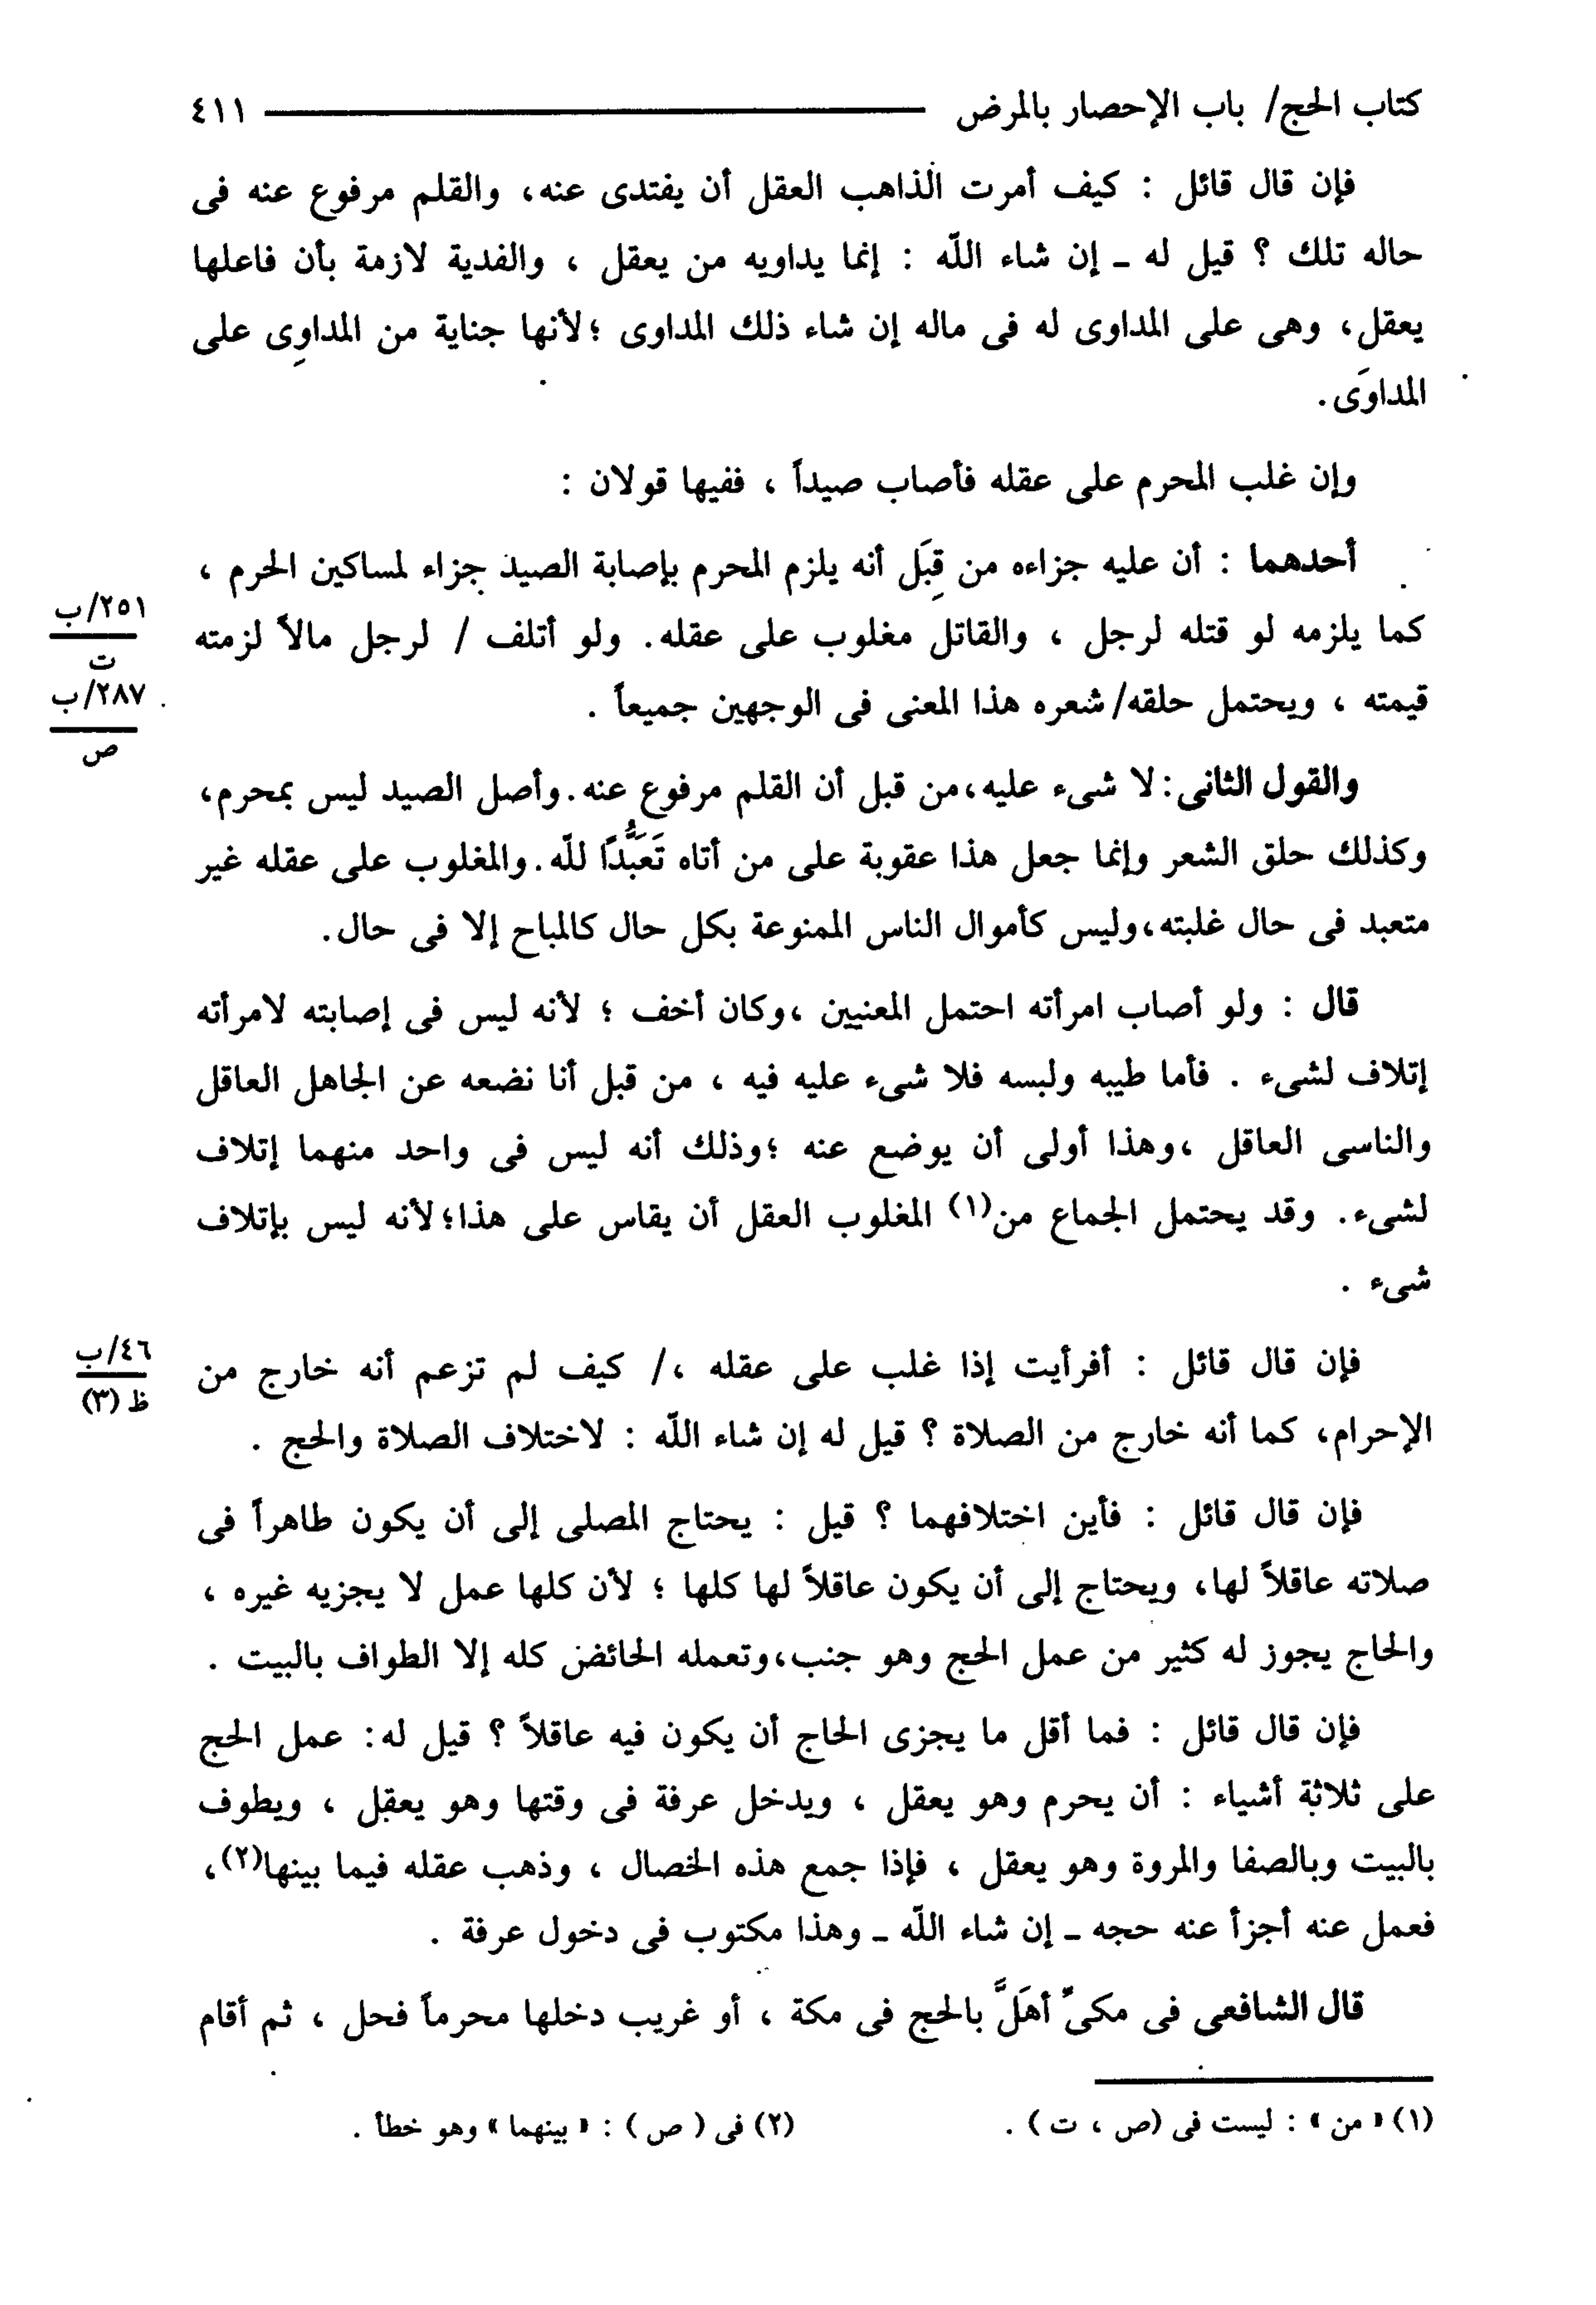 كتاب الحج/ باب الإحصار بالمرض ٤١١
فإن قال قائل : كيف أمرت الذاهب العقل أن يفتدى عنه، والقلم مرفوع عنه فى
حاله تلك ؟ قيل له ـ إن شاء اللّه : إنما يداويه من يعقل ، والفدية لازمة بأن فاعلها
يعقل، وهى على المداوى له فى ماله إن شاء ذلك المداوى ؛لأنها جناية من المداوِى على
المداوَى.
وإن غلب المحرم على عقله فأصاب صيداً ، ففيها قولان :
أحدهما : أن عليه جزاءه من قِبَل أنه يلزم المحرم بإصابة الصيد جزاء لمساكين الحرم ،
٢٥١/ب
ت
كما يلزمه لو قتله لرجل ، والقاتل مغلوب على عقله. ولو أتلف / لرجل مالاً لزمته
٢٨٧/ب
ص
قيمته ، ويحتمل حلقه/ شعره هذا المعنى فى الوجهين جميعاً .
والقول الثانى: لا شىء عليه،من قبل أن القلم مرفوع عنه.وأصل الصيد ليس بمحرم،
وكذلك حلق الشعر وإنما جعل هذا عقوبة على من أتاه تَعَبُّدًا للّه.والمغلوب على عقله غير
متعبد فى حال غلبته،وليس كأموال الناس الممنوعة بكل حال كالمباح إلا فى حال.
قال : ولو أصاب امرأته احتمل المعنيين ،وكان أخف ؛ لأنه ليس فى إصابته لامرأته
إتلاف لشىء . فأما طيبه ولبسه فلا شىء عليه فيه ، من قبل أنا نضعه عن الجاهل العاقل
والناسى العاقل ،وهذا أولى أن يوضع عنه ؛وذلك أنه ليس فى واحد منهما إتلاف
لشىء. وقد يحتمل الجماع من(١) المغلوب العقل أن يقاس على هذا؛لأنه ليس بإتلاف
شىء .
٤٦/ب
ظ (٣)
فإن قال قائل : أفرأيت إذا غلب على عقله ،/ كيف لم تزعم أنه خارج من
الإحرام، كما أنه خارج من الصلاة ؟ قيل له إن شاء اللّه : لاختلاف الصلاة والحج .
فإن قال قائل : فأين اختلافهما ؟ قيل : يحتاج المصلى إلى أن يكون طاهراً فى
صلاته عاقلاً لها، ويحتاج إلى أن يكون عاقلاً لها كلها ؛ لأن كلها عمل لا يجزيه غيره ،
والحاج يجوز له كثير من عمل الحج وهو جنب،وتعمله الحائض كله إلا الطواف بالبيت .
فإن قال قائل : فما أقل ما يجزى الحاج أن يكون فيه عاقلاً ؟ قيل له: عمل الحج
على ثلاثة أشياء : أن يحرم وهو يعقل ، ويدخل عرفة فى وقتها وهو يعقل ، ويطوف
بالبيت وبالصفا والمروة وهو يعقل ، فإذا جمع هذه الخصال ، وذهب عقله فيما بينها(٢)،
فعمل عنه أجزأ عنه حجه ـ إن شاء اللّه ـ وهذا مكتوب فى دخول عرفة .
قال الشافعى فى مكىٍّ أهَلَّ بالحج فى مكة ، أو غريب دخلها محرماً فحل ، ثم أقام
(١) « من » : ليست فى (ص ، ت ) .
(٢) فى ( ص ) : « بينهما » وهو خطأ .